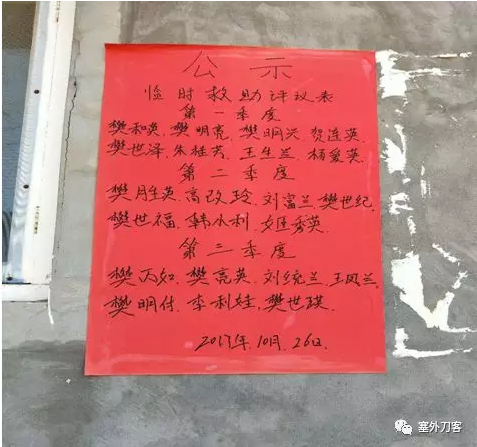 公示
临时救助评议表
第一季度
樊和英、樊明亮、樊明兴、贺连英、
樊世泽、朱桂芳、王生兰、杨爱英、
第二季度
樊月生英、高改玲、刘富兰、樊世纪、
樊世福、韩水利、姬秀英、
第三季度
樊丙如、樊亮英、刘统兰、王凤兰、
樊明付、李利娃、樊世琪、
2017年10月26日
塞外刀客